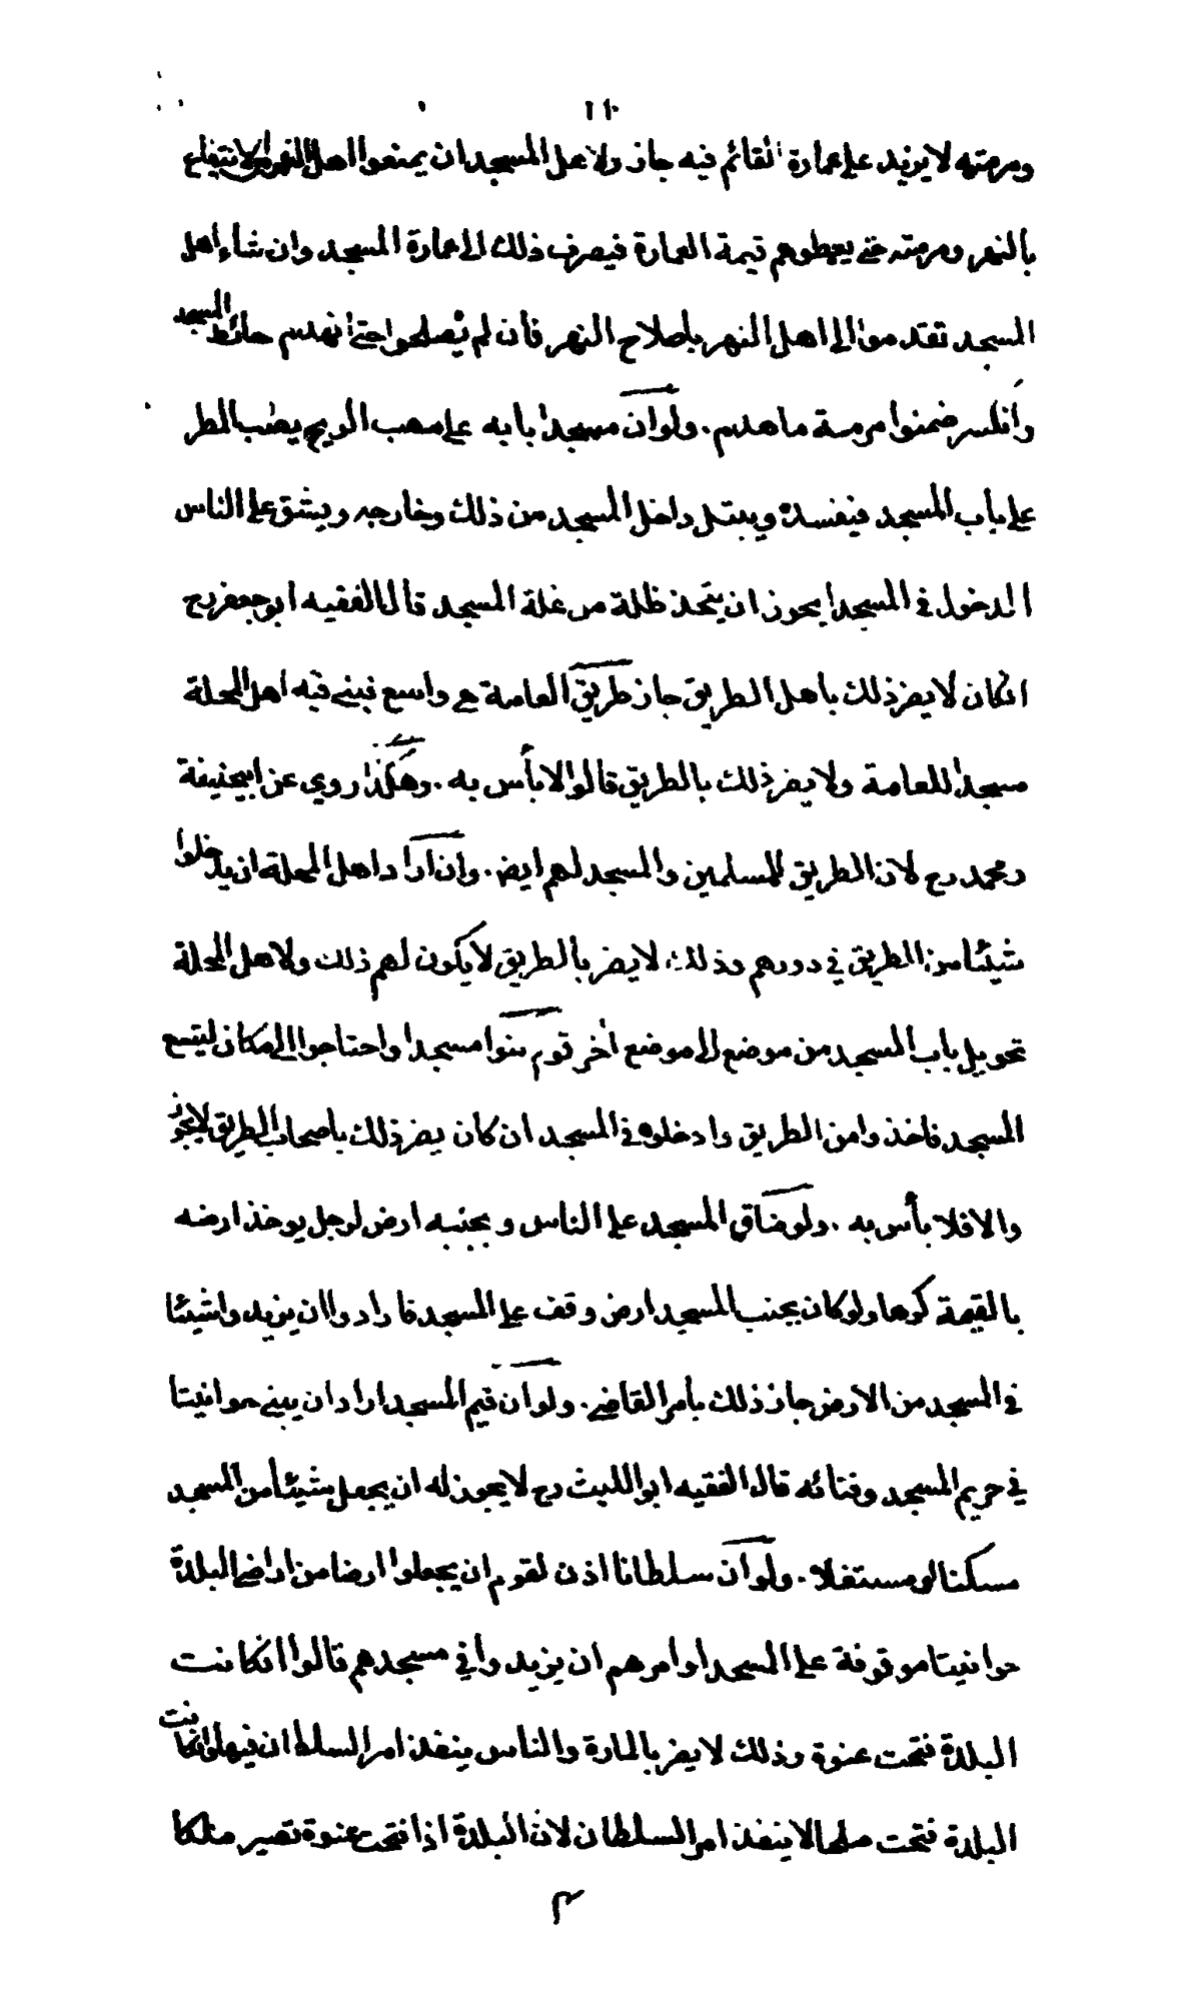 ١١٠
ومرمته لا يزيد على عمارة القائم فيه جاز ولاهل المسجد ان يمنعوا اهل النهر الانتفاع
بالنهر ومرمته حتى يعطوهم قيمة العمارة فيصرف ذلك الى عمارة المسجد وان شاء اهل
المسجد تقدموا الى اهل النهر باصلاح النهر فان لم يصلحوا حتى انهدم حائط المسجد
وانكسر ضمنوا مرمة ما هدم. ولو ان مسجدا بابه على مهب الريح يصب المطر
على باب المسجد فيفسده ويبتل داخل المسجد من ذلك وخارجه ويشق على الناس
الدخول في المسجد ايجوز ان يتخذ ظلة من غلة المسجد قال الفقيه ابو جعفر رح
انكان لا يضر ذلك باهل الطريق جاز طريق العامة هي واسع فبنى فيه اهل المحلة
مسجدا للعامة ولا يضر ذلك بالطريق قالوا لا بأس به. وهكذا روي عن ابيحنيفة
ومحمد رح لان الطريق للمسلمين والمسجد لهم ايض. وان اراد اهل المحلة ان يدخلوا
شيئا من الطريق في دورهم وذلك لا يضر بالطريق لا يكون لهم ذلك ولاهل المحلة
تحويل باب المسجد من موضع الى موضع اخر قوم بنوا مسجدا واحتاجوا الى مكان ليتسع
المسجد فاخذوا من الطريق وادخلوه في المسجد ان كان يضر ذلك باصحاب الطريق لا يجوز
والا فلا بأس به. ولو ضاق المسجد على الناس وبجنبه ارض لرجل يوخذ ارضه
بالقيمة كرها ولو كان بجنب المسجد ارض وقف على المسجد فارادوا ان يزيدوا شيئا
في المسجد من الارض جاز ذلك بأمر القاضي. ولو ان قيم المسجد اراد ان يبنى حوانيتا
في حريم المسجد وفنائه قال الفقيه ابو الليث رح لا يجوز له ان يجعل شيئا من المسجد
مسكنا او مستغلا. ولو ان سلطانا اذن لقوم ان يجعلوا ارضا من اراضي البلدة
حوانيتا موقوفة على المسجد او امرهم ان يزيدوا في مسجدهم قالوا انكانت
البلدة فتحت عنوة وذلك لا يضر بالمارة والناس ينفذ امر السلطان فيها وانكانت
البلدة فتحت صلحا لا ينفذ امر السلطان لان البلدة اذا فتحت عنوة تصير ملكا